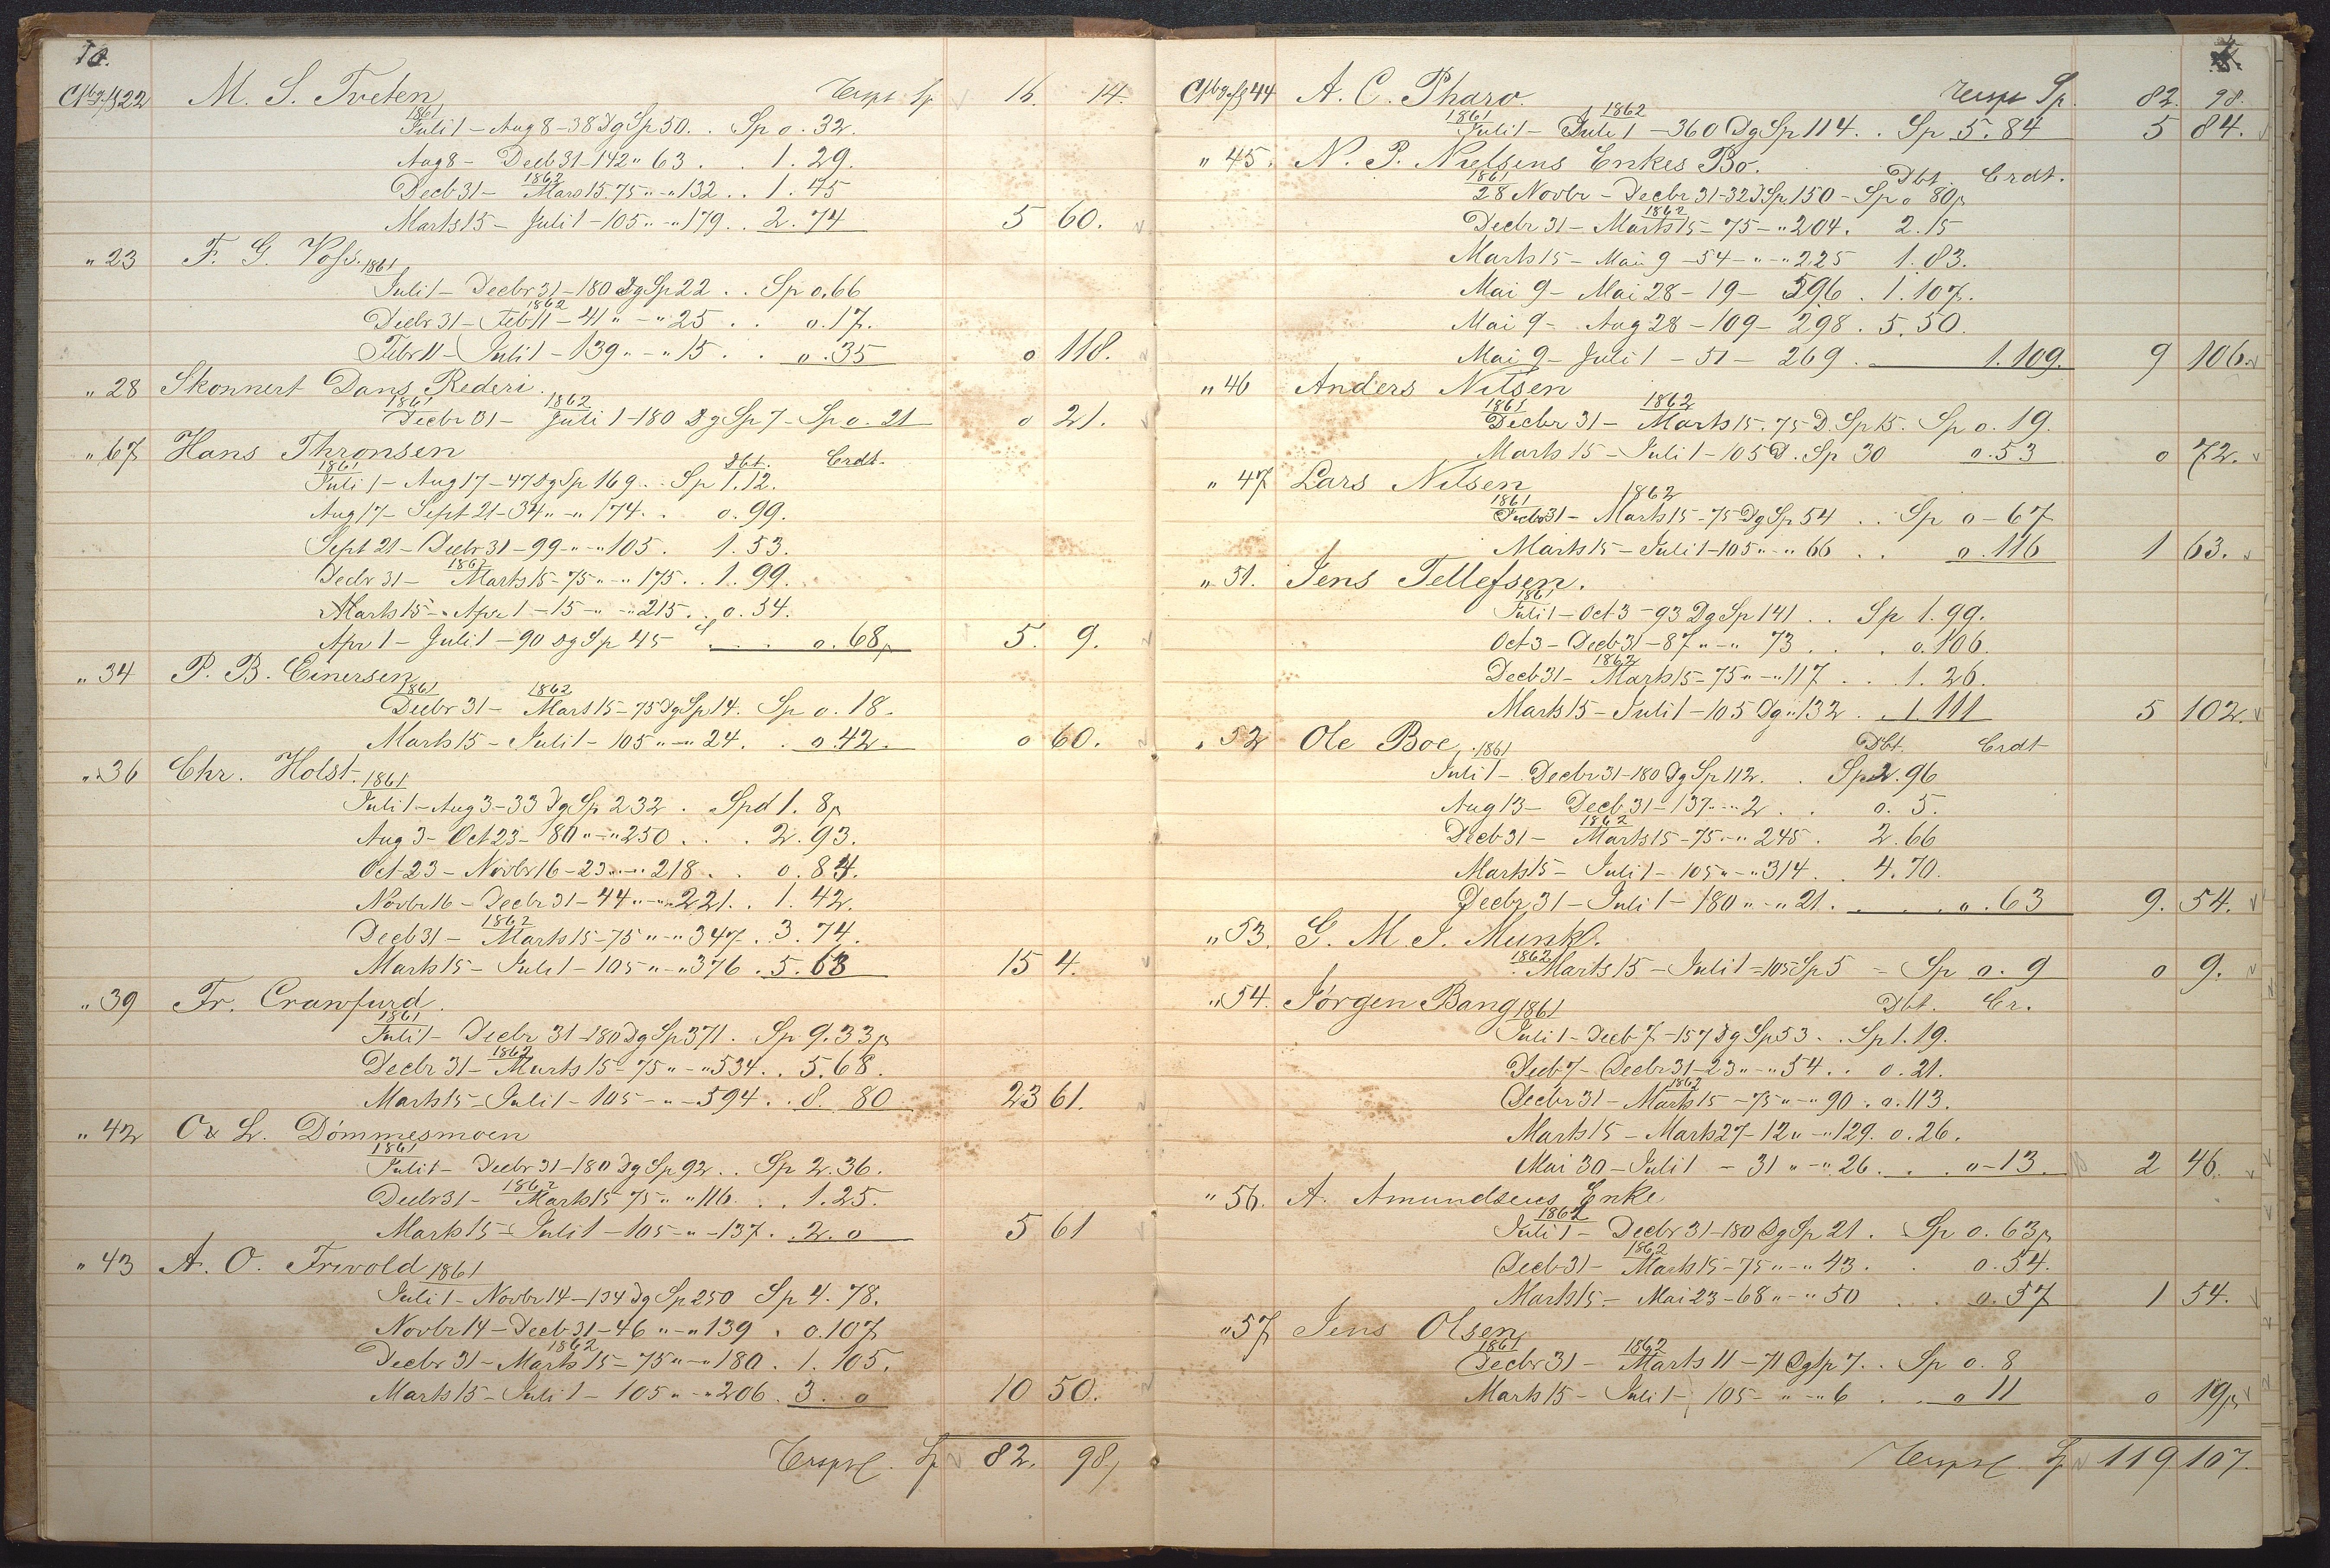 10.
22 M. S. Tveten Trspt Sp 16. 14.
1861
Juli 1 – Aug 8 – 38 Dg Sp 50 . . Sp 0. 32.
Aug 8 – Decb 31 – 142 " 63 . . 1. 29.
1862
Decb 31 – Mars 15. 75 " – " 132 . . 1. 45
Marts 15 – Juli 1 – 105 " – " 179 . . 2. 74 5 60.
" 23 F. G. Voss. 1861
Juli 1 – Decbr 31 – 180 Dg Sp 22 . . Sp 0. 66
1862
Decbr 31 – Feb 11 – 41 " – " 25 . . 0. 17.
Febr 11 – Juli 1 – 139 " – " 15 . . 0. 35 0 118.
" 28 Skonnert Dans Rederi.
1861 1862
Decbr 31 – Juli 1 – 180 Dg Sp 7 – Sp 0. 21 0 21.
" 67 Hans Thronsen
1861 Dbt. Crdt.
Juli 1 – Aug 17 – 47 Dg Sp 169 . . Sp 1. 12.
Aug 17 – Sept 21 – 34 " – " 174 . . 0. 99.
Sept 21 – Decbr 31 – 99 – " – " 105 . 1. 53.
1862
Decbr 31 – Marts 15 – 75 " – " 175 . . 1. 99.
Marts 15 – Apr 1 – 15 – " – " 215 . . 0. 34.
Apr 1 – Juli 1 – 90 Dg Sp 45 . . . 0. 68 5. 9.
" 34 P. B. Einersen
1861 1862
Decbr 31 – Mars 15 – 75 Dg Sp 14. Sp 0. 18.
Marts 15 – Juli 1 – 105 " – " 24. . 0. 42. 0 60.
" 36 Chr. Holst. 1861
Juli 1 – Aug 3 – 33 Dg Sp 232 . Spd 1. 8
Aug 3 – Oct 23 – 80 " – " 250 . . . 2. 93.
Oct 23 – Novbr 16 – 23 " – " 218 . . 0. 84.
Novbr 16 – Decbr 31 – 44 " – " 221 . . 1. 42.
1862
Decb 31 – Marts 15 – 75 " – " 347 . 3. 74.
Marts 15 – Juli 1 – 105 " – " 376 . 5. 63 15 4.
" 39 Fr. Crawfurd.
1861
Juli 1 – Decbr 31 – 180 Dg Sp 371 . Sp 9. 33
1862
Decbr 31 – Marts 15 – 75 " – " 534 . . 5. 68.
Marts 15 – Juli 1 – 105 – " – 594 . . 8. 80 23 61.
" 42 O & L. Dömmesmoen
1861
Juli 1 – Decbr 31 – 180 Dg Sp 92 . . Sp 2. 36.
1862
Decbr 31 – Marts 15 75 " " 116 . . 1. 25.
Marts 15 – Juli 1 – 105 – " – 137 . . 2. 0 5 61
" 43 A. O. Frivold 1861
Juli 1 – Novbr 14 – 134 Dg Sp 250 Sp 4. 78.
Novbr 14 – Decb 31 – 46 " – " 139 . 0. 107
1862
Decbr 31 – Marts 15 – 75 " – " 180 . 1. 105.
Marts 15 – Juli 1 – 105 " – " 206 . 3. 0 10 50.
Trspt Sp 82. 98
44 A. C. Pharo. Trspt Sp. 82. 98.
1861 1862
Juli 1 – Juli 1 – 360 Dg Sp 114 . . Sp 5. 84 5 84.
" 45. N. P. Nielsens Enkes Bo.
1861 Dbt. Crdt.
28 Novbr – Decbr 31 – 32 D Sp 150 – Sp 0 80
1862
Decbr 31 – Marts 15 – 75 – " 204 . 2. 15
Marts 15 – Mai 9 – 54 – " – " 225 1. 83.
Mai 9 – Mai 28 – 19 – 596 . 1. 107.
Mai 9 – Aug 28 – 109 – 298 . 5. 50.
Mai 9 – Juli 1 – 51 – 269 . 1. 109. 9 106.
" 46 Anders Nilsen
1861 1862
Decbr 31 – Marts 15. 75 D. Sp 15. Sp 0. 19.
Marts 15 – Juli 1 – 105 D. Sp 30 0. 53 0 72.
" 47 Lars Nilsen
1861 1862
Decbr 31 – Marts 15 – 75 Dg Sp 54 . . Sp 0 – 67
Marts 15 – Juli 1 – 105 " – " 66 . . 0. 116 1 63.
" 51. Jens Tellefsen.
1861
Juli 1 – Oct 3 – 93 Dg Sp 141 . . Sp 1. 99.
Oct 3 – Decb 31 – 87 " – " 73 . . . 0. 106.
1862
Decb 31 – Marts 15 – 75 " – " 117 . . . 1. 26.
Marts 15 – Juli 1 – 105 Dg " 132 . . 1 111 5 102.
" 52 Ole Boe. 1861 Dbt. Crdt
Juli 1 – Decbr 31 – 180 Dg Sp 112. . Sp 2. 96
Aug 13 – Decb 31 – 137 " – " 2 . . 0. 5.
1862
Decb 31 – Marts 15 – 75 – " 245 . 2. 66
Marts 15 – Juli 1 – 105 " – " 314 . . 4. 70.
Decbr 31 – Juli 1 – 180 " – " 21 . . . . 0. 63 9. 54.
" 53. G. M. J. Munk.
1862
Marts 15 – Juli 1 – 105 Sp 5 – Sp 0. 9 0 9.
" 54. Jörgen Bang 1861 Dbt. Cr.
Juli 1 – Decb 7 – 157 Dg Sp 53 . . Sp 1. 19.
Decb 7 – Decbr 31 – 23 " – " 54 . . 0. 21.
1862
Decbr 31 – Marts 15 – 75 " – " 90 . 0. 113.
Marts 15 – Marts 27 – 12 " – " 129. 0. 26.
Mai 30 – Juli 1 – 31 " – " 26 . . . 0 – 13. 2 46.
" 56. A. Amundsens Enke
1862
Juli 1 – Decbr 31 – 180 Dg Sp 21 . Sp 0. 63
1862
Decb 31 – Marts 15 – 75 " – " 43 . . 0. 54.
Marts 15 – Mai 23 – 68 " – " 50 . . 0. 57 1 54.
" 57 Jens Olsen
1861 1862
Decbr 31 – Marts 11 – 71 Dg Sp 7. . Sp 0. 8
Marts 15 – Juli 1 – 105 – " – " 6 . . 0 11 0 19
Trspt Sp 119 107.